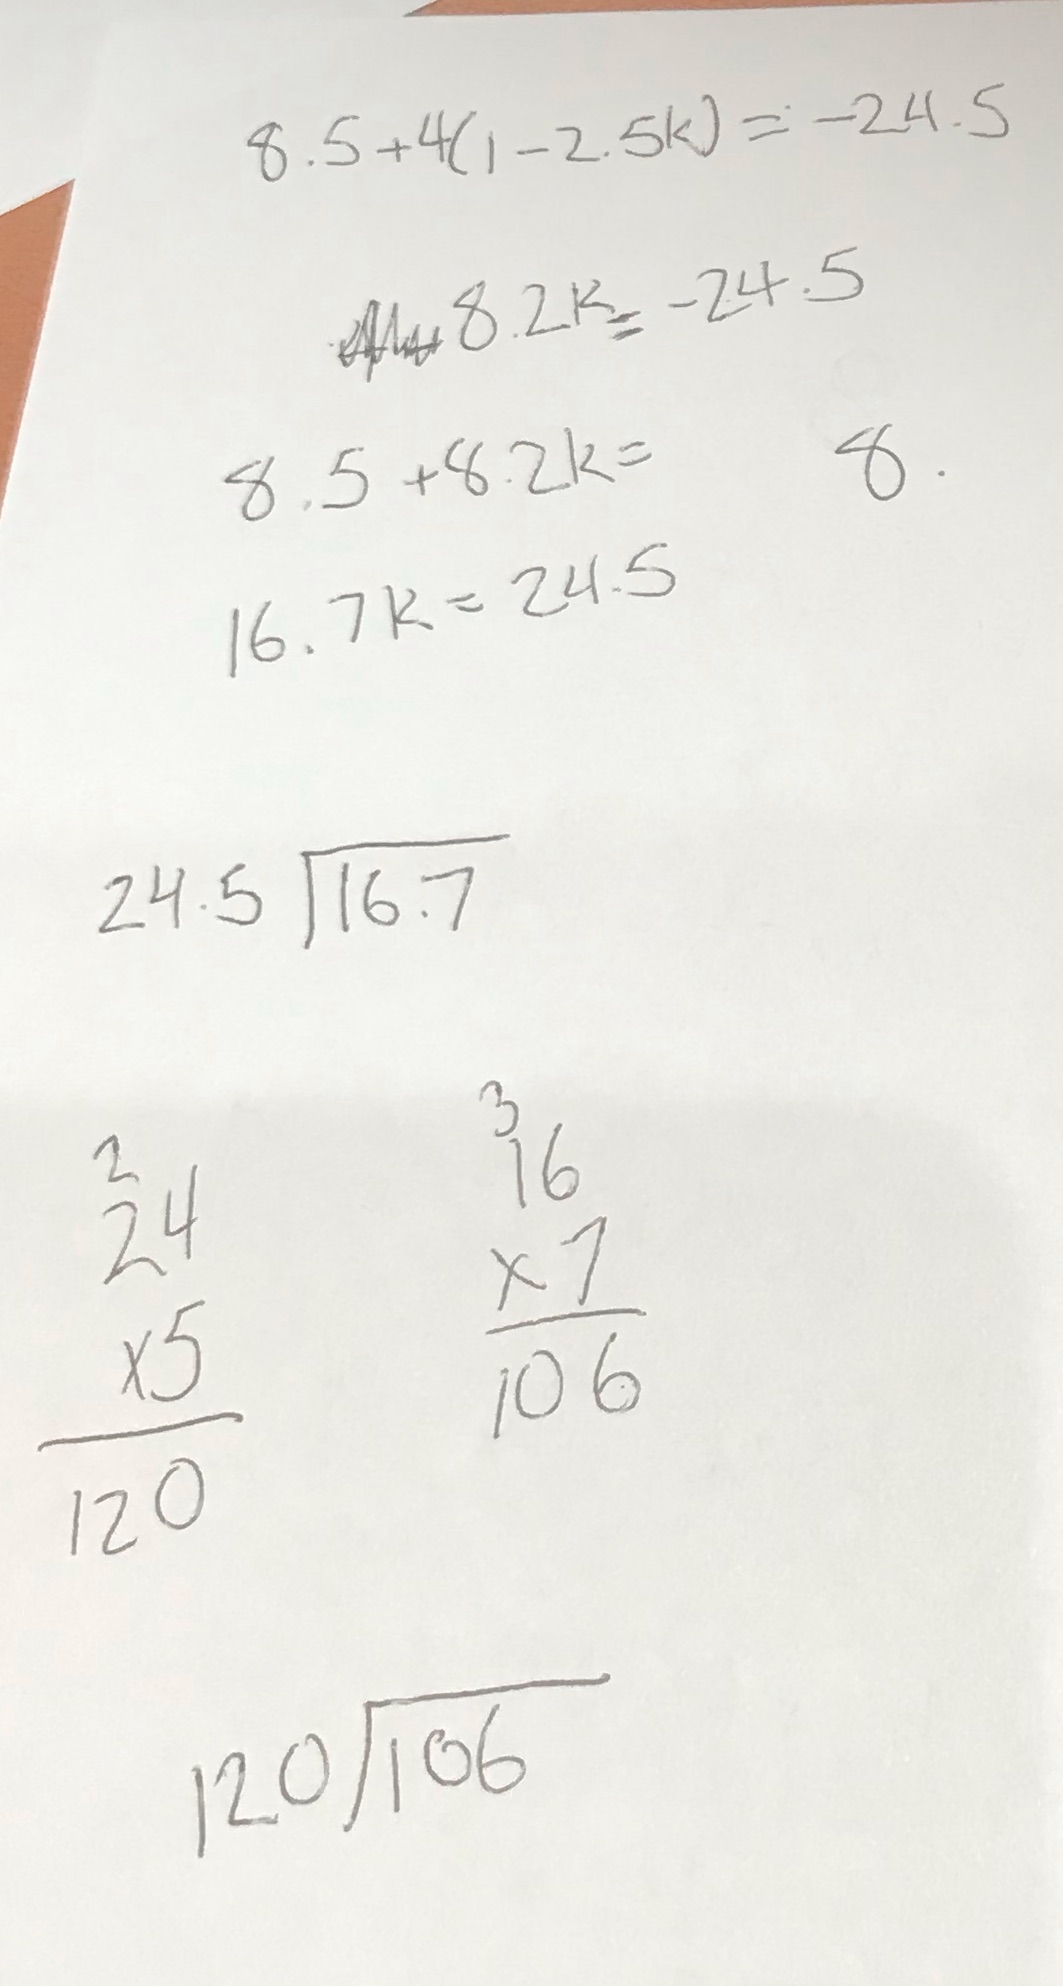 8.5+4(1-2.5k)=-24.5
8.2k=-24.5
8.5+8.2k= 8.
16.7k=24.5
24.5 16.7
2 3
24 16
x5 x7
120 106
120 106